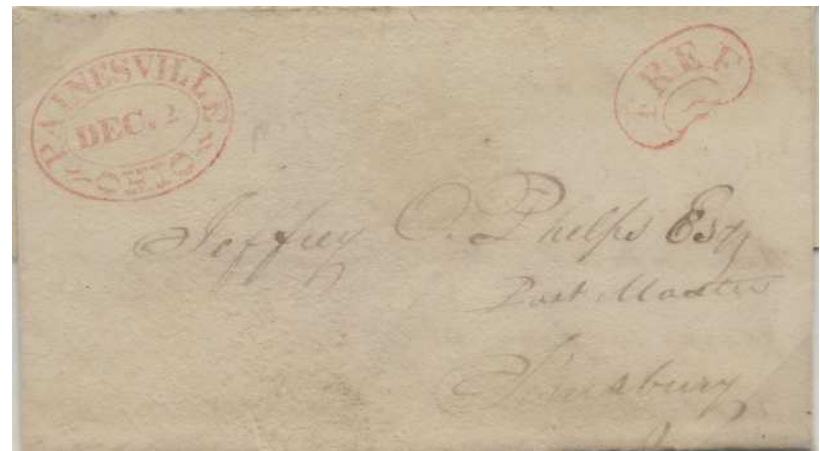 PAINESVILLE
DEC. 2
OHIO
FREE
Jeffrey O. Phelps Esq
Post Master
Simsbury